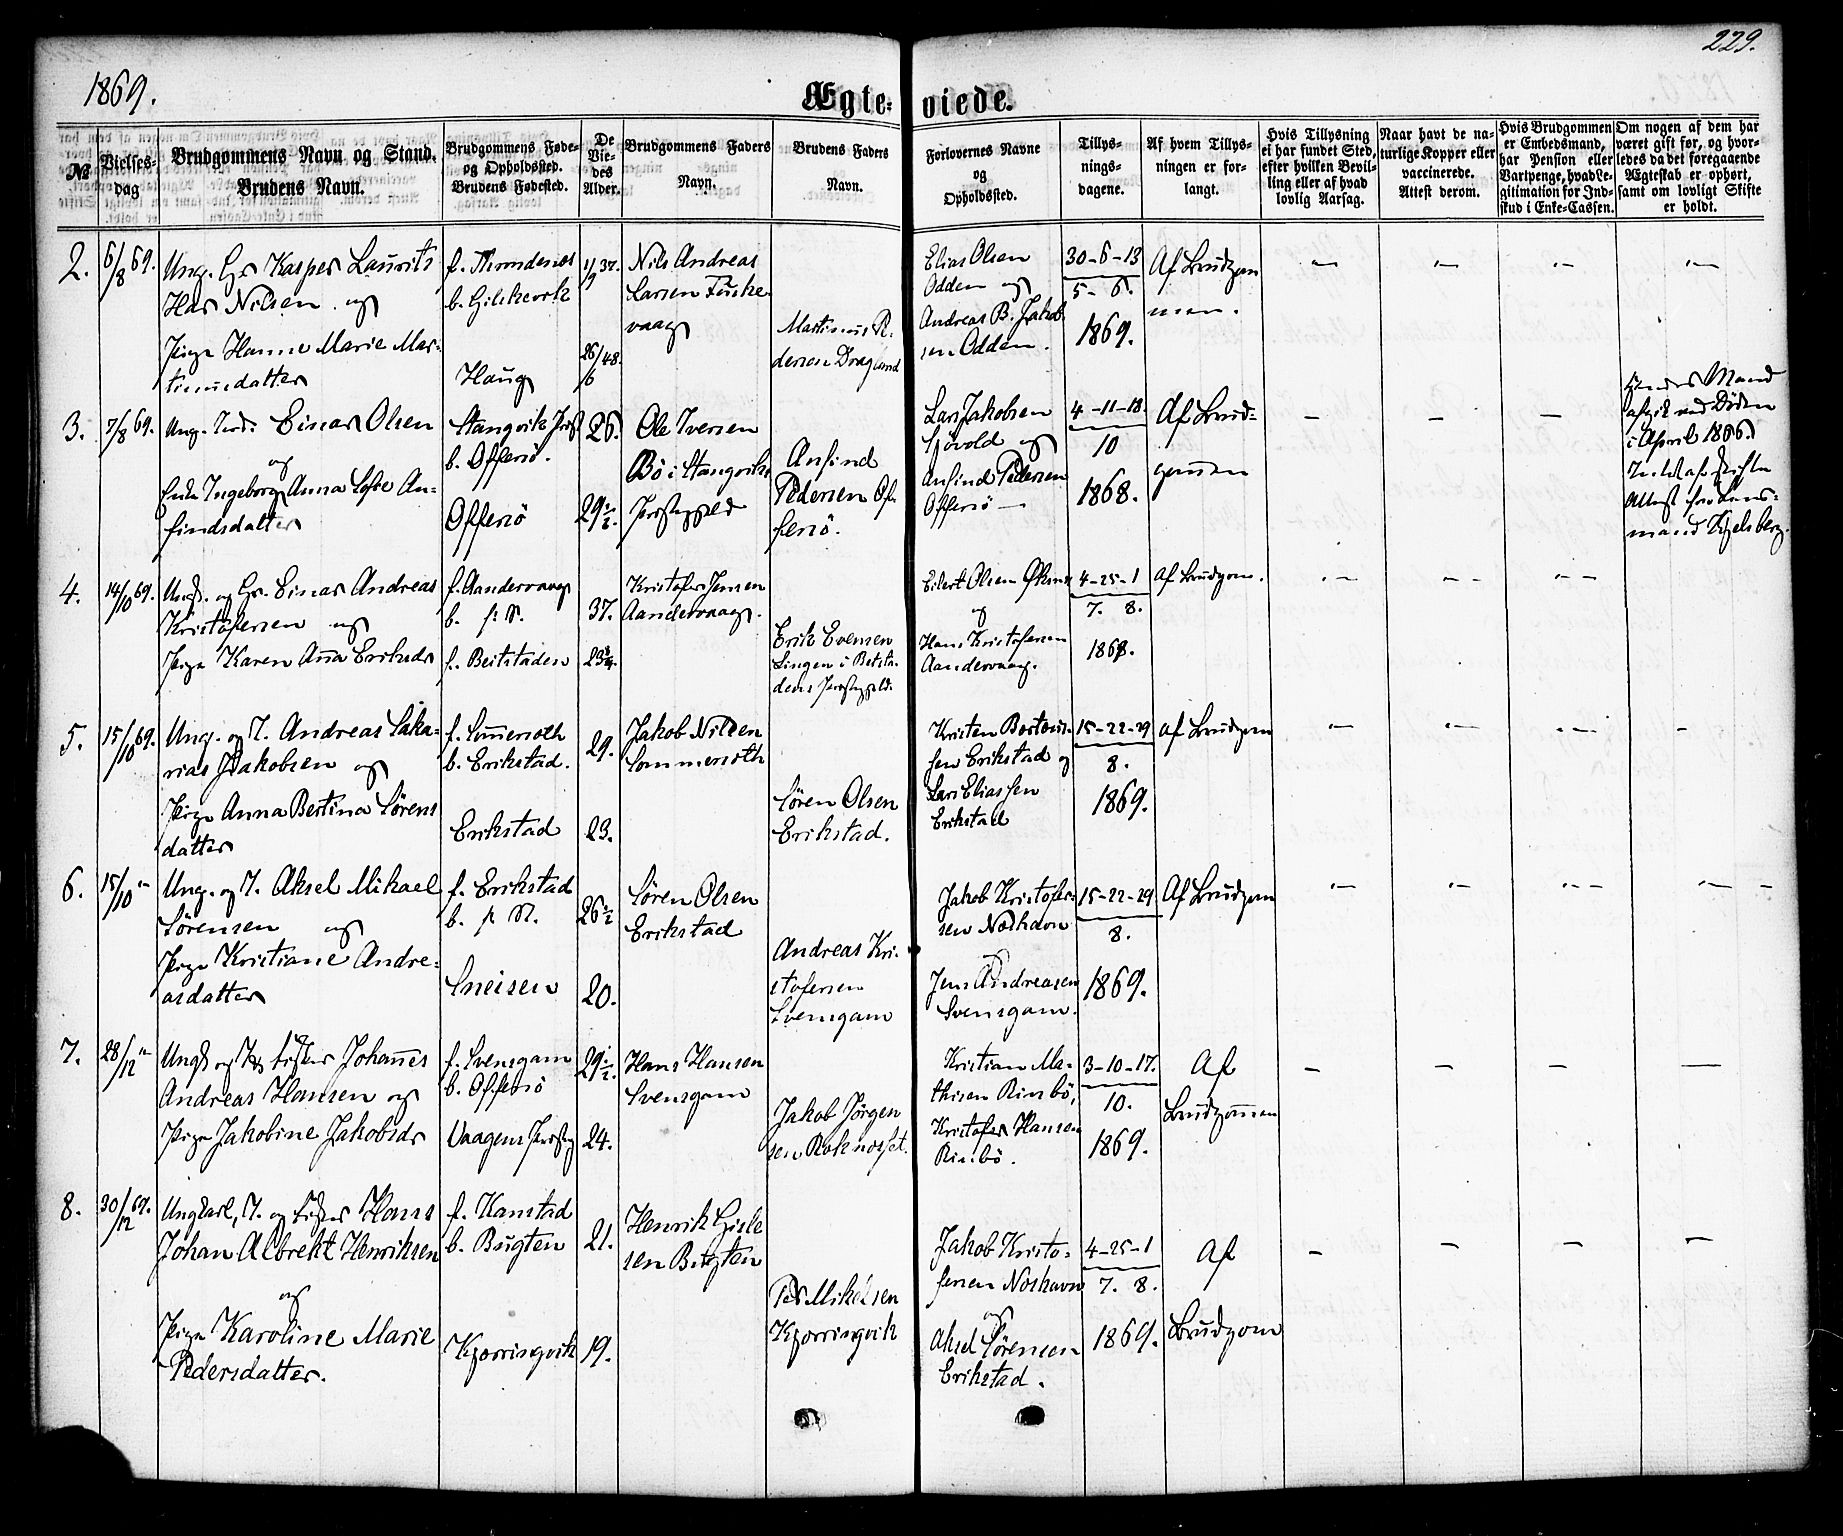 229.
1869.
Ægteviede.
№
Vielsesdag
Brudgommens Navn og Stand.
Brudens Navn.
Brudgommens Føde-
og Opholdssted.
Brudens Fødested.
De
Vie-
des
Alder.
Brudgommens Faders
Navn.
Brudens Faders
Navn.
Forlovernes Navne
og
Opholdssted.
Tillys-
nings-
dagene.
Af hvem Tillys-
ningen er for-
langt.
Hvis Tillysning
ei har fundet Sted,
efter hvilken Bevil-
ling eller af hvad
lovlig Aarsag.
Naar havt de na-
turlige Kopper eller
vaccinerede.
Attest derom.
Hvis Brudgommen
er Embedsmand,
har Pension eller
Vartpenge, hvad Le-
gitimation for Ind-
skud i Enke-Cassen.
Om nogen af dem har
været gift før, og hvor-
ledes da det foregaaende
Ægteskab er ophørt,
samt om lovligt Skifte
er holdt.
2.
6/8 69.
Ung. Gr Kasper Laurits
Nilsen og
Pige Hanne Marie Mar-
tinusdatter
f. Throndenes
b.
Haug
1/9 37.
26/6 48.
Nils Andreas
Larsen Fuske-
vaag
Martinus P.
dersen Dragland
Elias Olsen
Odden og
Andreas B. Jakob
sen Odden.
30-6-13
5- 6.
1869.
Af Brudgom
men.
3.
7/8 69.
Ung. Inds. Einar Olsen
og
Enke Ingeborg Anna Sofie An-
findsdatter
Stangvik
b. Offersö.
Offersö
26.
29 1/2.
Ole Iversen
Bö i Stangviks
Præstegjeld
Anfind
Pedersen Of-
fersö.
Lars Jakobsen
Sjövold og
Anfind Pedersen
Offersö
4-11-18.
10
1868.
Af Brud-
gommen
Hendes Mand
afgik ved Döden
i April 1866.
Attest fra Lens-
mand Kjelsberg.
4.
14/10 69.
Ungk. og Gr. Einar Andreas
Kristofersen og
Pige Karen Anna Eriksdr
f. Aandervaag
b. p. St.
f. Beitstaden
37.
23 3/4.
Kristofer Jensen
Aandervaag.
Erik Evensen
i Beitsta-
dens Præstegjeld.
Eilert Olsen Öksnes
og
Hans Kristofersen
Aandervaag.
4-25-1
7. 8.
1869.
Af Brudgom.
5.
15/10 69.
Ung. og I. Andreas Saka-
rias Jakobsen og
Pige Anna Bertina Sörens
datter
f. Sommerseth
b. Erikstad.
Erikstad
29.
23.
Jakob Nilsen
Sommerseth
Sören Olsen
Erikstad.
Kristen Berteus-
sen Erikstad og
Lars Eliassen
Erikstad
15-22-29
8.
1869.
Af Brudgom
6.
15/10 "
Ung. og I. Aksel Mikael
Sörensen og
Pige Kristiane Andre-
asdatter
f. Erikstad
b. p St.
Sneisen
26 1/2
20.
Sören Olsen
Erikstad
Andreas Kri-
stofersen
Svensgam
Jakob Kristofer-
sen Næshavn
og
Jens Andreasen
Svensgam.
15-22-29
8.
1869.
Af Brudgom
7.
28/12 "
Ungk og I. og Fisker Johannes
Andreas Hansen og
Pige Jakobine Jakobsdr
f. Svensgam
b. Offersö
Vaagens
29 1/2.
24.
Hans Hansen
Svensgam
Jakob Jörgen
sen Roknesset.
Kristian Ma-
thisen Rinbö,
Kristofer Hansen
Rinbö.
3-10-17.
10.
1869.
Af
Brudgommen
8.
30/12 69.
Ungkarl, I. og Fisker Hans
Johan Albrekt Henriksen
og
Pige Karoline Marie
Pedersdatter.
f. Kanstad
b. Bugten
Kjörringvik
21.
19.
Henrik Gisle
sen Bugten
Per Mikelsen
Kjörringvik
Jakob Kristo-
fersen Næshavn
og
Aksel Sörensen
Erikstad.
4-25-1
7. 8.
1869.
Af
Brudgom